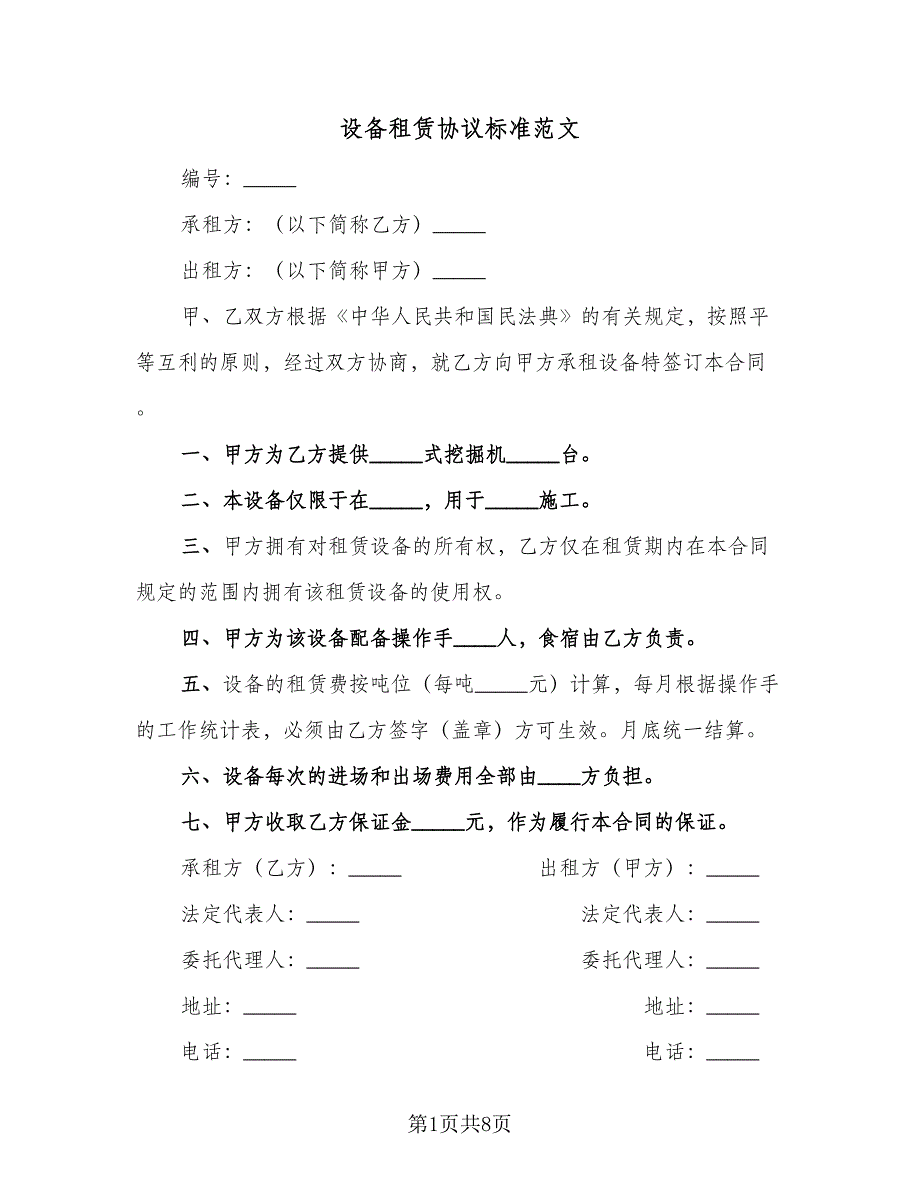 设备租赁协议标准范文
编号：_____
承租方：（以下简称乙方）_____
出租方：（以下简称甲方）_____
甲、乙双方根据《中华人民共和国民法典》的有关规定，按照平
等互利的原则，经过双方协商，就乙方向甲方承租设备特签订本合同
。
一、甲方为乙方提供_____式挖掘机_____台。
二、本设备仅限于在_____，用于_____施工。
三、甲方拥有对租赁设备的所有权，乙方仅在租赁期内在本合同
规定的范围内拥有该租赁设备的使用权。
四、甲方为该设备配备操作手____人，食宿由乙方负责。
五、设备的租赁费按吨位（每吨_____元）计算，每月根据操作手
的工作统计表，必须由乙方签字（盖章）方可生效。月底统一结算。
六、设备每次的进场和出场费用全部由____方负担。
七、甲方收取乙方保证金_____元，作为履行本合同的保证。
承租方（乙方）：_____ 出租方（甲方）：_____
法定代表人：_____ 法定代表人：_____
委托代理人：_____ 委托代理人：_____
地址：_____ 地址：_____
电话：_____ 电话：_____
第1页共8页